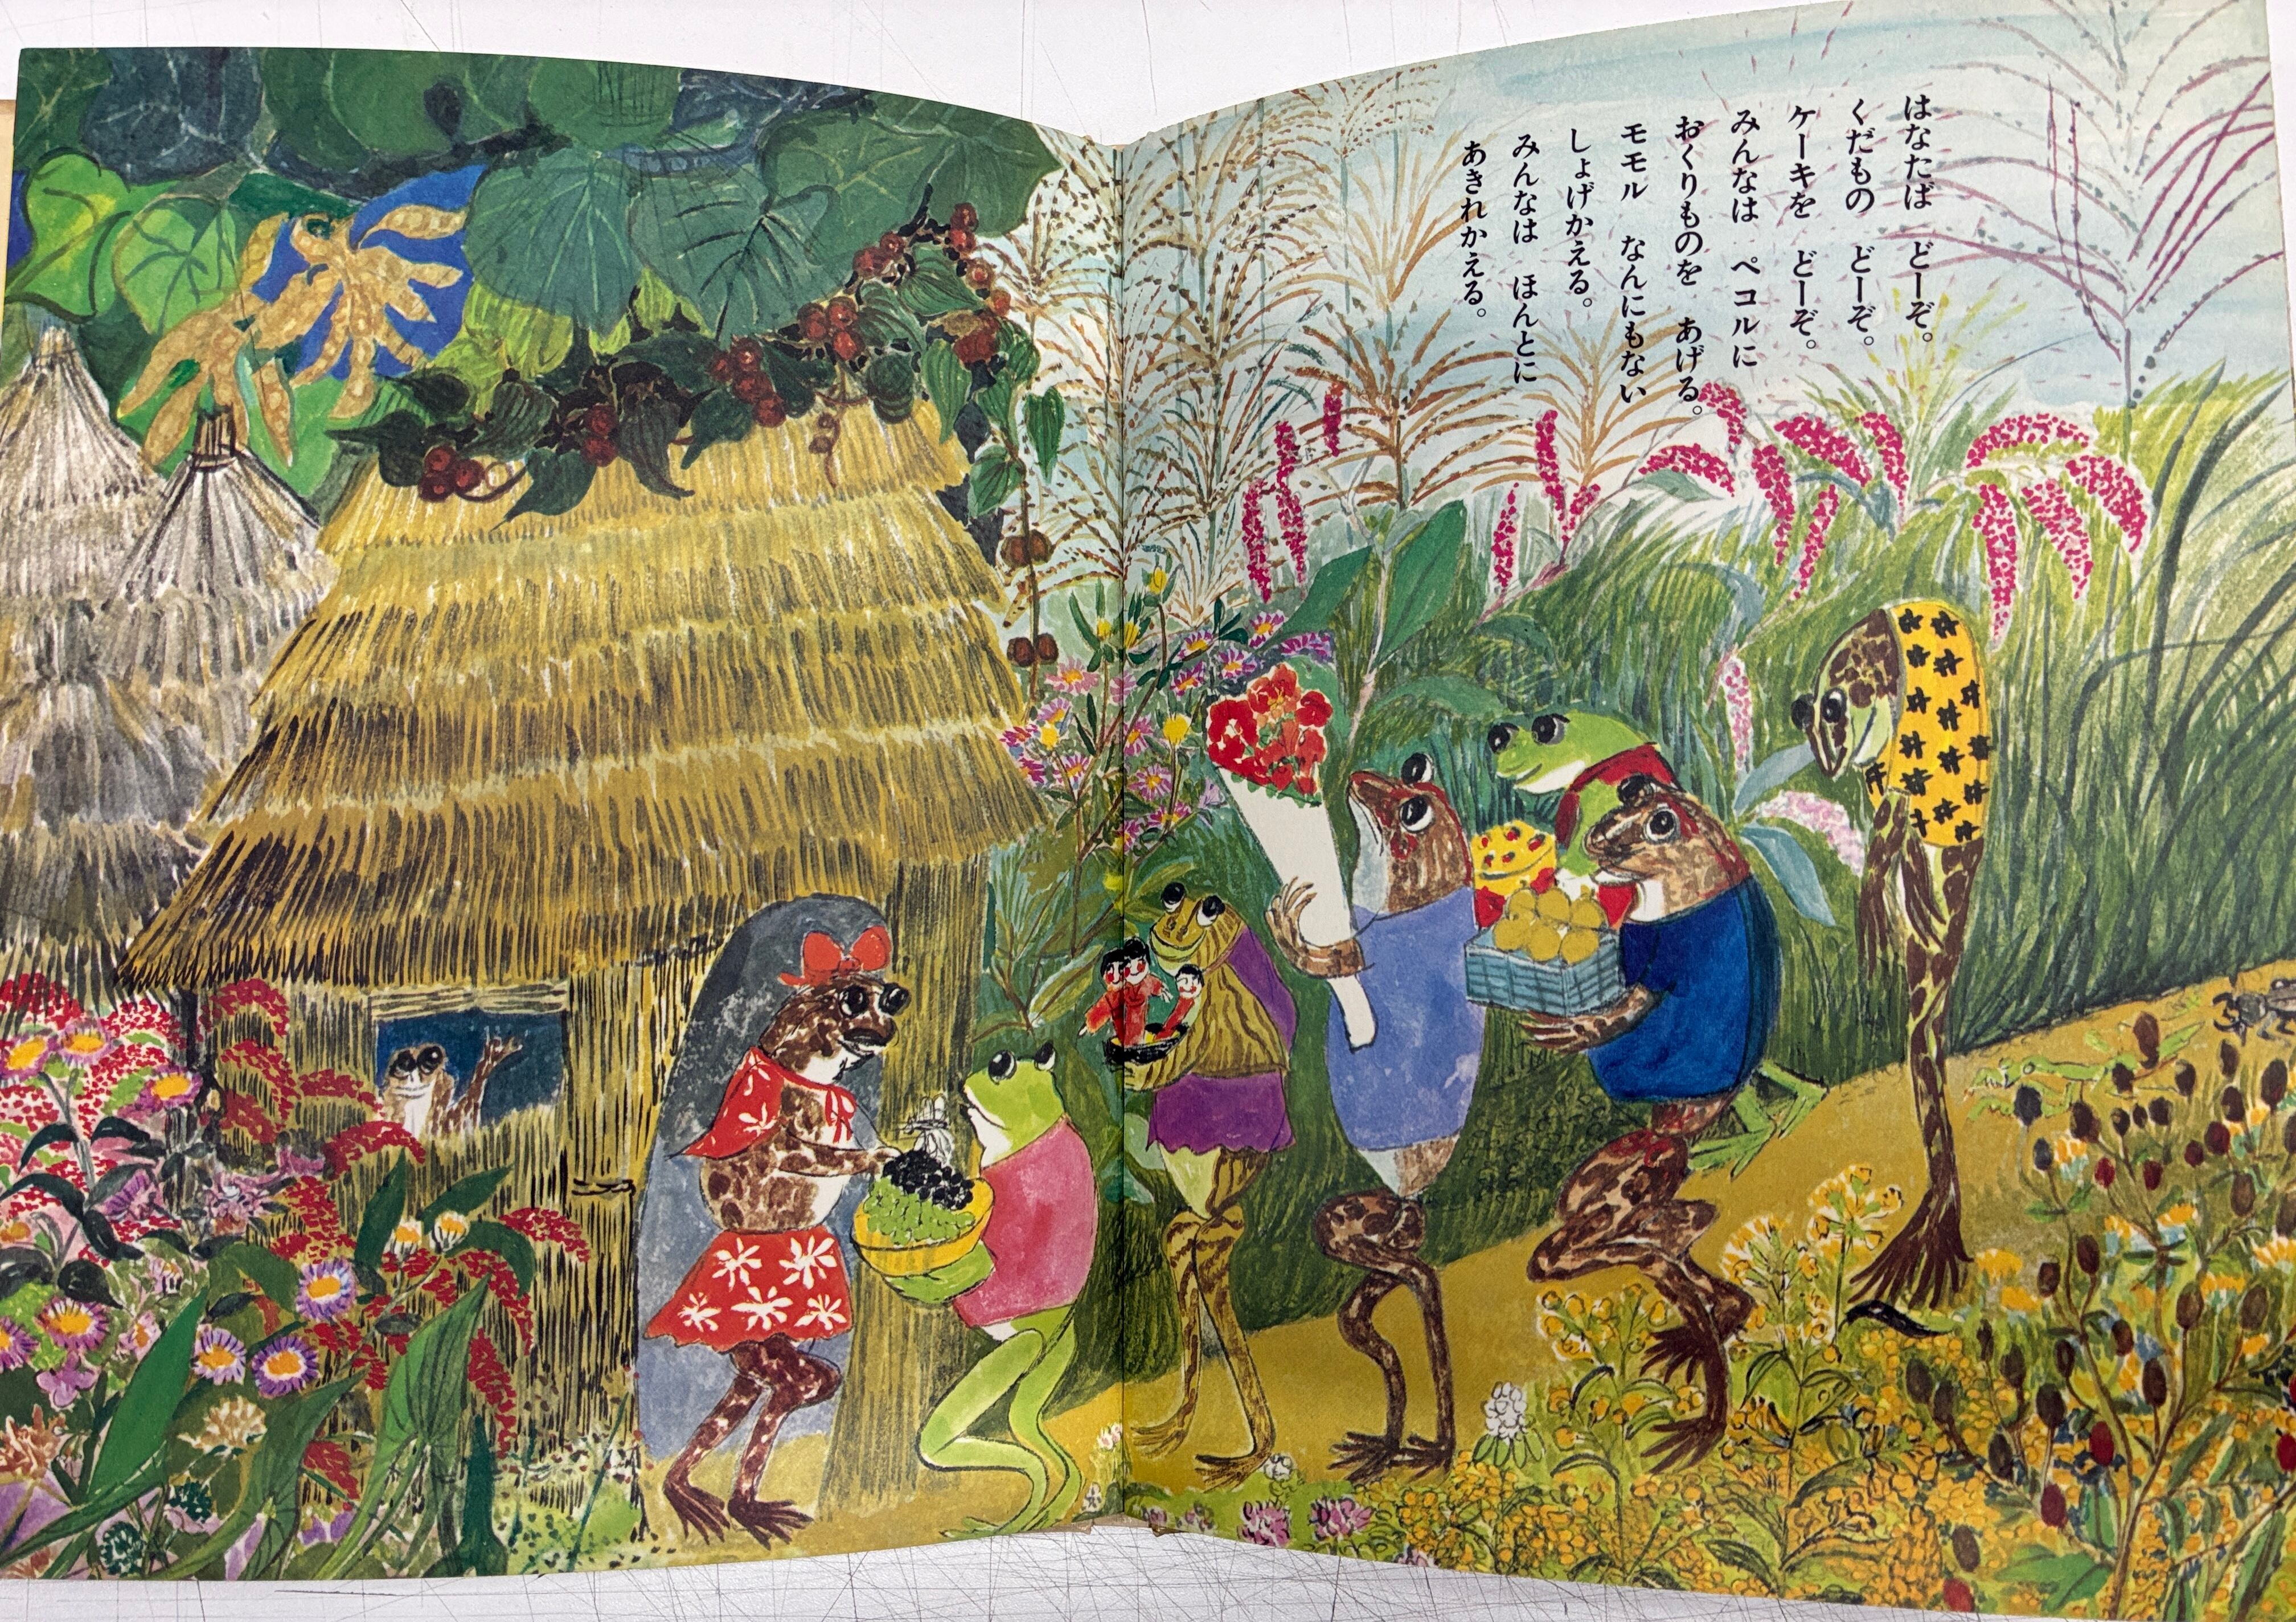 はなたば　どーぞ。
くだもの　どーぞ。
ケーキを　どーぞ。
みんなは　ペコルに
おくりものを　あげる。
モモル　なんにもない
しょげかえる。
みんなは　ほんとに
あきれかえる。